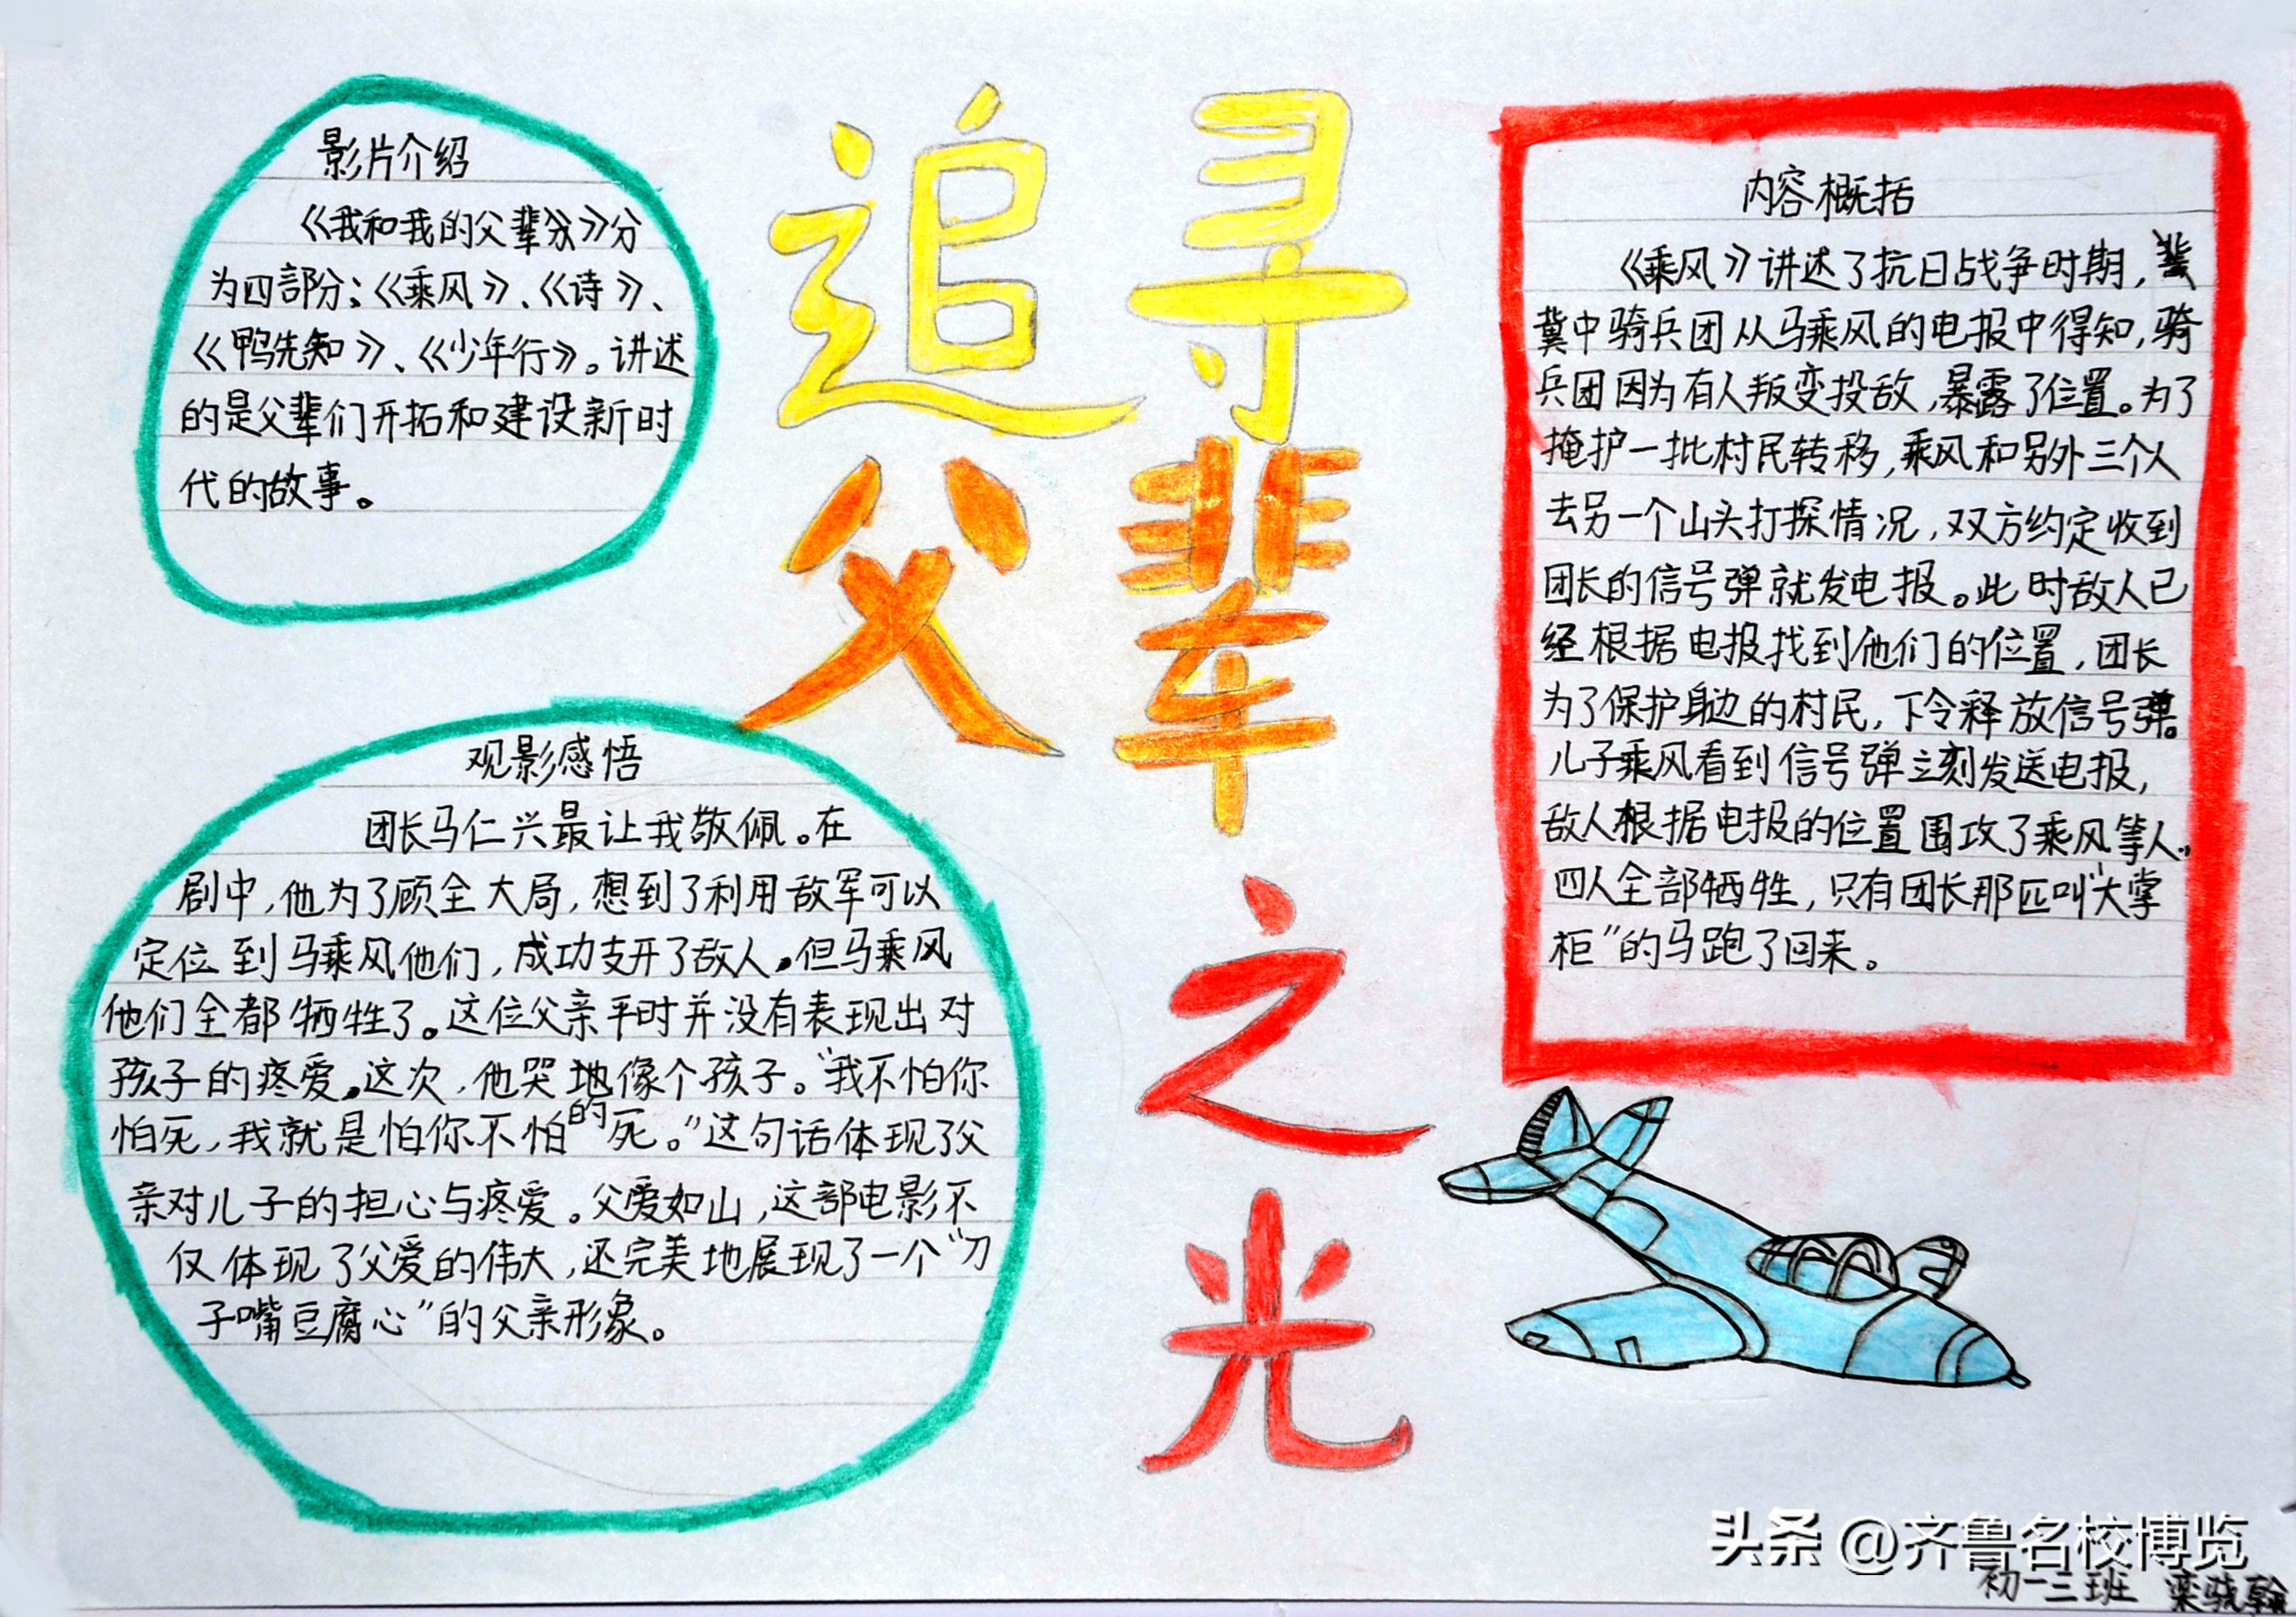 追寻
父辈
之
光
影片介绍
《我和我的父辈》分
为四部分:《乘风》、《诗》、
《鸭先知》、《少年行》。讲述
的是父辈们开拓和建设新时
代的故事。
观影感悟
团长马仁兴最让我敬佩。在
剧中,他为了顾全大局,想到了利用敌军可以
定位到马乘风他们,成功支开了敌人。但马乘风
他们全都牺牲了。这位父亲平时并没有表现出对
孩子的疼爱。这次,他哭地像个孩子。“我不怕你
怕死,我就是怕你不怕的死。”这句话体现了父
亲对儿子的担心与疼爱。父爱如山,这部电影不
仅体现了父爱的伟大,还完美地展现了一个“刀
子嘴豆腐心”的父亲形象。
内容概括
《乘风》讲述了抗日战争时期,
冀中骑兵团从马乘风的电报中得知,骑
兵团因为有人叛变投敌,暴露了位置。为了
掩护一批村民转移,乘风和另外三个人
去另一个山头打探情况,双方约定收到
团长的信号弹就发电报。此时敌人已
经根据电报找到他们的位置,团长
为了保护身边的村民,下令释放信号弹。
儿子乘风看到信号弹立刻发送电报,
敌人根据电报的位置围攻了乘风等人,
四人全部牺牲,只有团长那匹叫“大掌
柜”的马跑了回来。
头条 @齐鲁名校博览
初一三班 栾骁翰